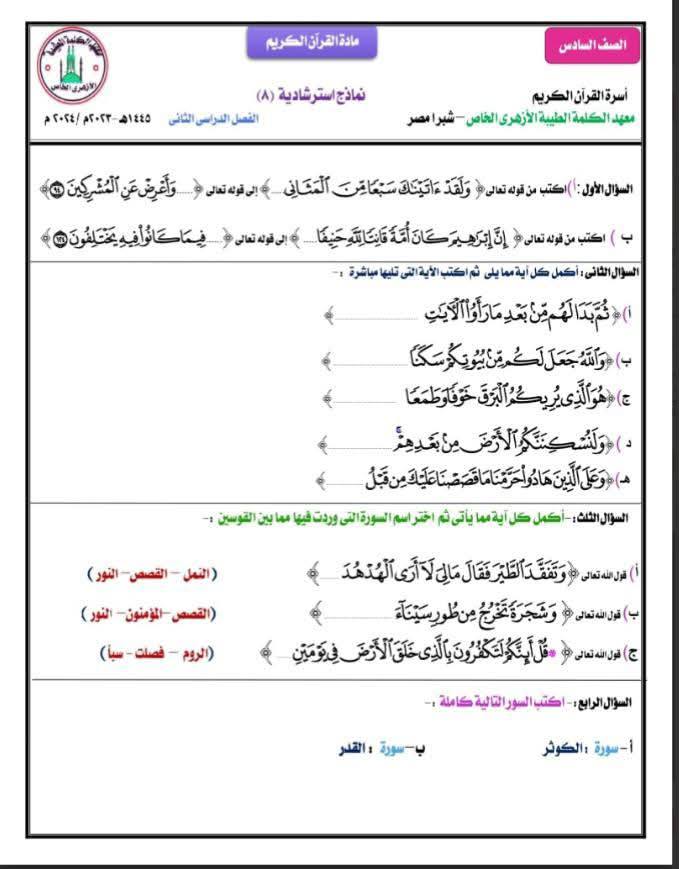 الصف السادس
مادة القرآن الكريم
أسرة القرآن الكريم
نماذج استرشادية (٨)
معهد الكلمة الطيبة الأزهرى الخاص – شبرا مصر
الفصل الدراسى الثانى
١٤٤٥هـ -٢٠٢٣م / ٢٠٢٤ م
السؤال الأول : أ ) اكتب من قوله تعالى ﴿ وَلَقَدْ ءَاتَيْنَٰكَ سَبْعًا مِّنَ ٱلْمَثَانِى .... ﴾ إلى قوله تعالى ﴿ .....وَأَعْرِضْ عَنِ ٱلْمُشْرِكِينَ ٩٤ ﴾
ب ) اكتب من قوله تعالى ﴿ إِنَّ إِبْرَٰهِيمَ كَانَ أُمَّةً قَانِتًا لِّلَّهِ حَنِيفًا .... ﴾ إلى قوله تعالى ﴿ ..... فِيمَا كَانُوا۟ فِيهِ يَخْتَلِفُونَ ١٢٤ ﴾
السؤال الثانى : أكمل كل آية مما يلى ثم اكتب الآية التى تليها مباشرة :-
أ ) ﴿ ثُمَّ بَدَا لَهُم مِّنۢ بَعْدِ مَا رَأَوُا۟ ٱلْءَايَٰتِ ............ ﴾
ب ) ﴿ وَٱللَّهُ جَعَلَ لَكُم مِّنۢ بُيُوتِكُمْ سَكَنًا ............ ﴾
ج ) ﴿ هُوَ ٱلَّذِى يُرِيكُمُ ٱلْبَرْقَ خَوْفًا وَطَمَعًا ............ ﴾
د ) ﴿ وَلَنُسْكِنَنَّكُمُ ٱلْأَرْضَ مِنۢ بَعْدِهِمْ ............ ﴾
هـ ) ﴿ وَعَلَى ٱلَّذِينَ هَادُوا۟ حَرَّمْنَا مَا قَصَصْنَا عَلَيْكَ مِن قَبْلُ ............ ﴾
السؤال الثلث : - أكمل كل آية مما يأتى ثم اختر اسم السورة التى وردت فيها مما بين القوسين :-
أ ) قول الله تعالى ﴿ وَتَفَقَّدَ ٱلطَّيْرَ فَقَالَ مَالِىَ لَآ أَرَى ٱلْهُدْهُدَ ............ ﴾ ( النمل – القصص – النور )
ب ) قول الله تعالى ﴿ وَشَجَرَةً تَخْرُجُ مِن طُورِ سَيْنَآءَ ............ ﴾ (القصص – المؤمنون – النور )
ج ) قول الله تعالى ﴿ ۞قُلْ أَئِنَّكُمْ لَتَكْفُرُونَ بِٱلَّذِى خَلَقَ ٱلْأَرْضَ فِى يَوْمَيْنِ ............ ﴾ (الروم – فصلت – سبأ )
السؤال الرابع : - اكتب السور التالية كاملة :-
أ – سورة : الكوثر
ب – سورة : القدر